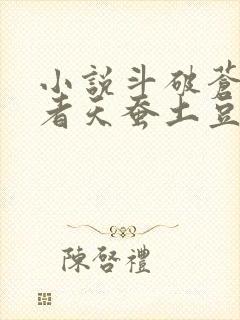 小説斗破蒼
者天蚕土豆
陳啓禮